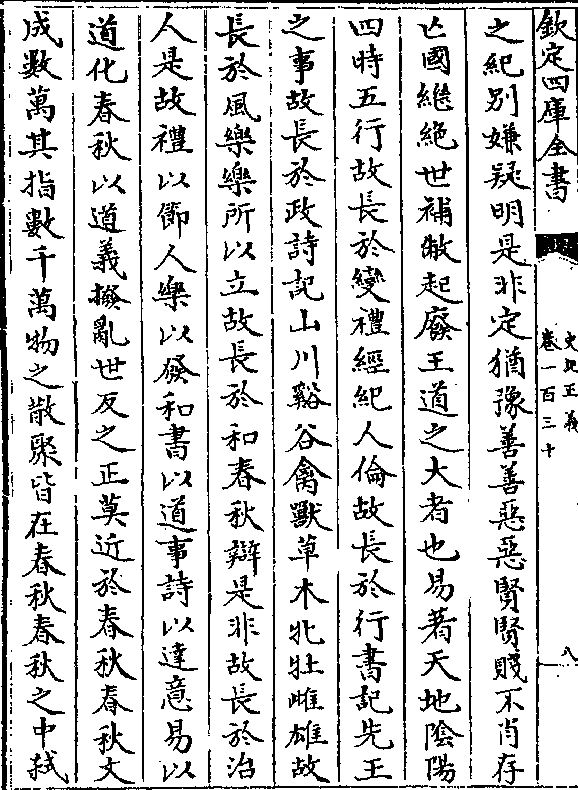 欽定四庫全書
史記正義
卷一百三十
八
之紀别嫌疑明是非定猶豫善善惡惡賢賢賤不肖存
亡國繼絶世補敝起廢王道之大者也易著天地陰陽
四時五行故長於變禮經紀人倫故長於行書記先王
之事故長於政詩記山川谿谷禽獸草木牝牡雌雄故
長於風樂樂所以立故長於和春秋辯是非故長於治
人是故禮以節人樂以發和書以道事詩以達意易以
道化春秋以道義撥亂世反之正莫近於春秋春秋文
成數萬其指數千萬物之散聚皆在春秋春秋之中弑